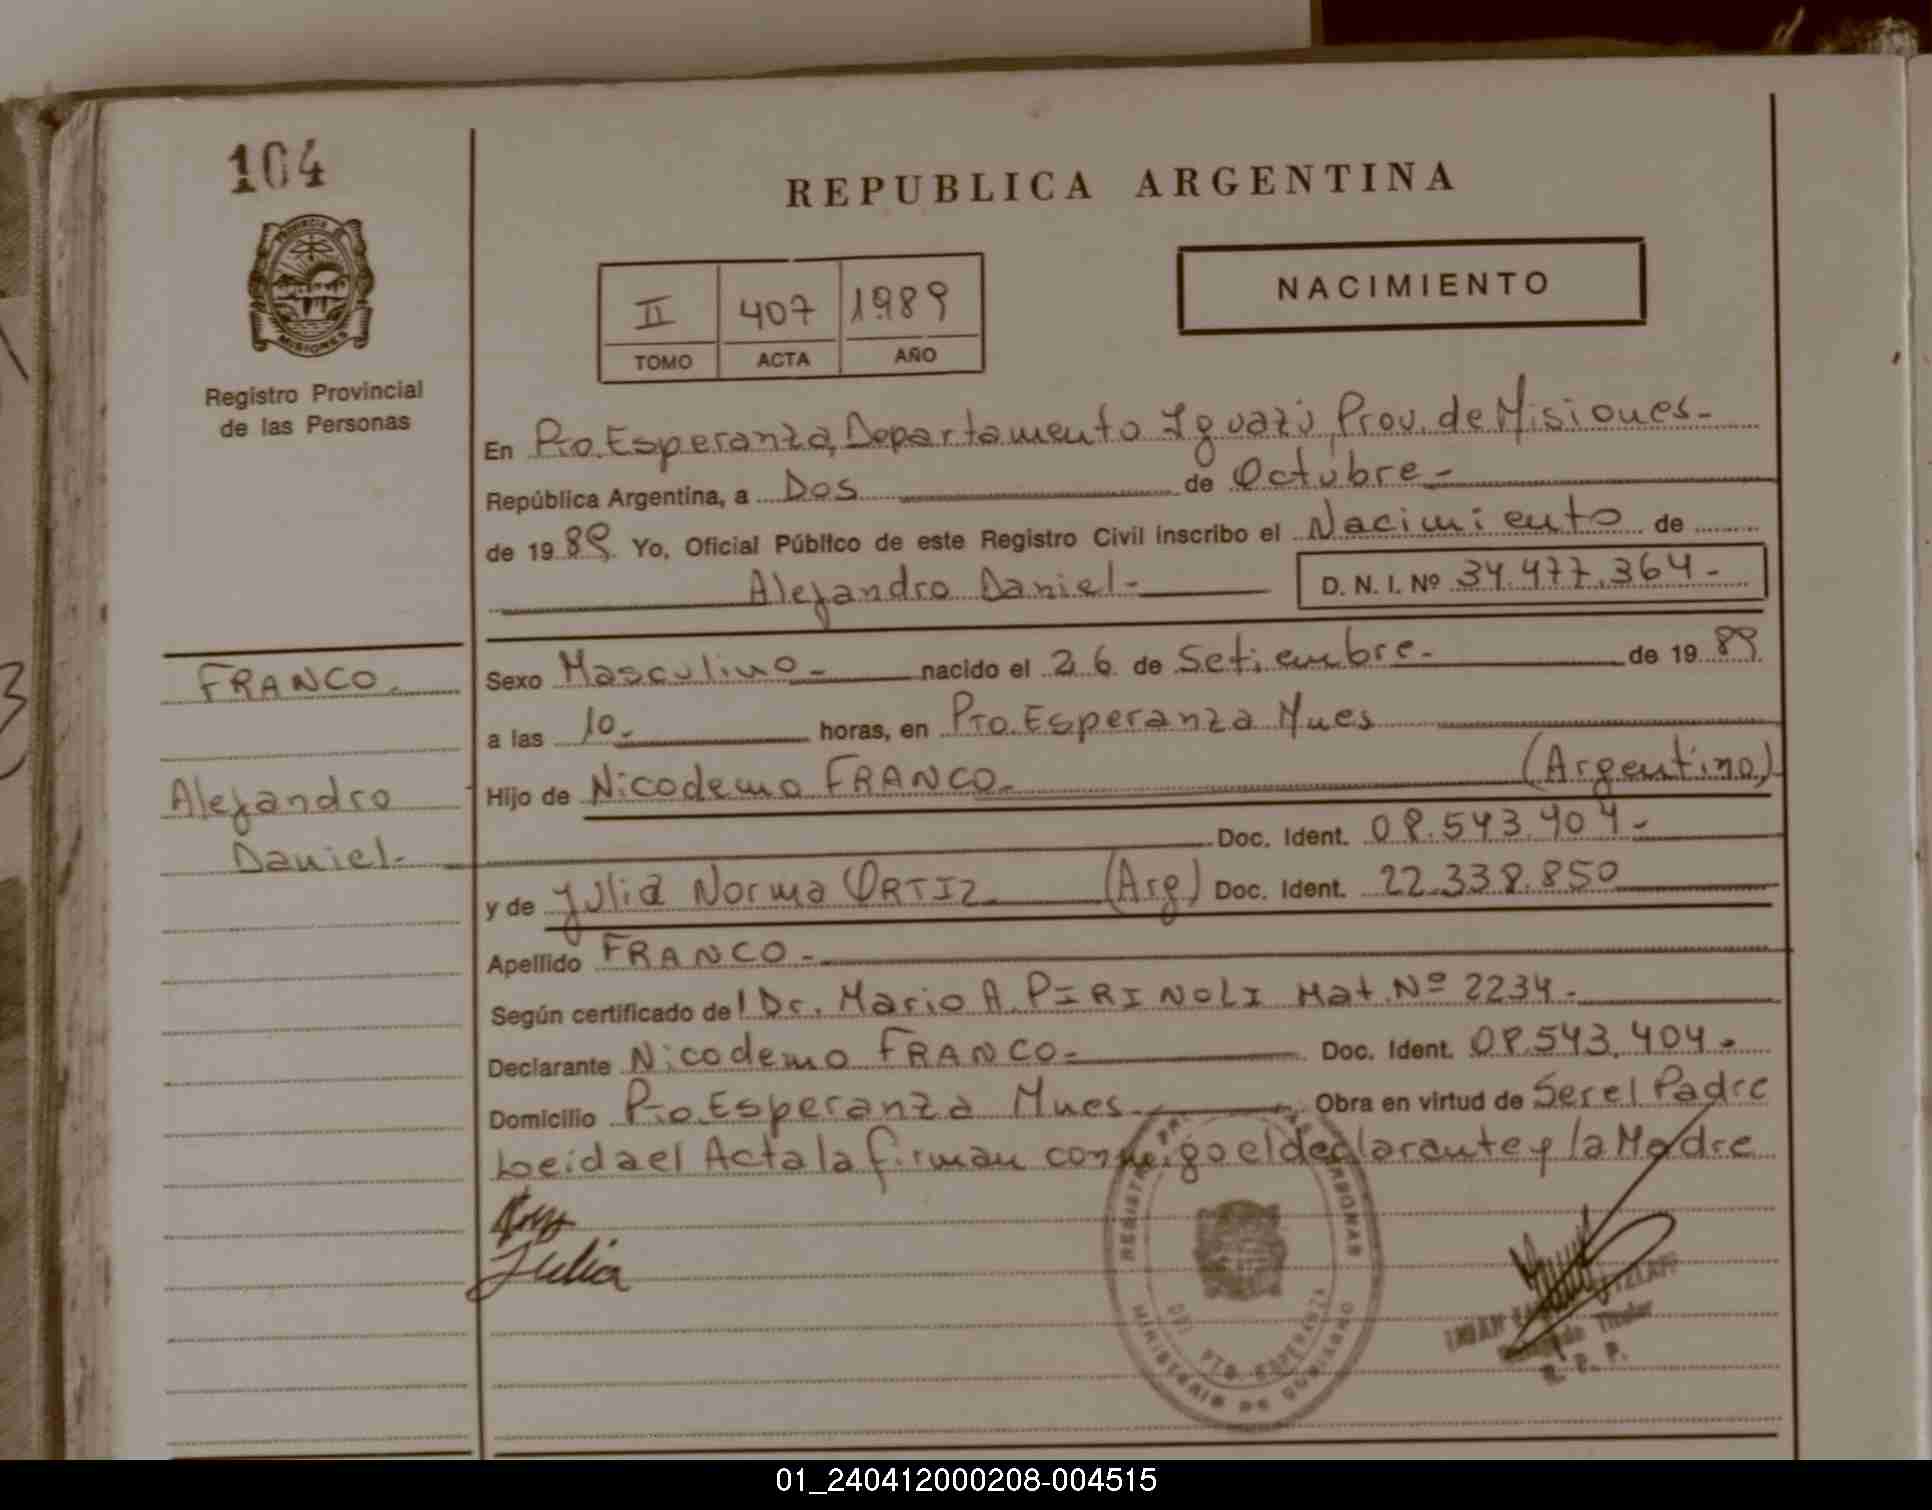 104
PROVINCIA DE
MISIONES
Registro Provincial
de las Personas
REPUBLICA ARGENTINA
II 407 1989
TOMO ACTA AÑO
NACIMIENTO
En Pto. Esperanza, Departamento Iguazú, Prov. de Misiones-
República Argentina, a Dos de Octubre-
de 1989. Yo, Oficial Público de este Registro Civil inscribo el Nacimiento de
Alejandro Daniel- D. N. I. Nº 34.477.364-
FRANCO.
Alejandro
Daniel-
Sexo Masculino- nacido el 26 de Setiembre- de 1989.
a las 10. horas, en Pto. Esperanza Mnes
Hijo de Nicodemo FRANCO. (Argentino)
Doc. Ident. 08.543.404-
y de Julia Norma ORTIZ (Arg) Doc. Ident. 22.338.850
Apellido FRANCO-
Según certificado del Dr. Mario A. PIRINOLI Mat. Nº 2234-
Declarante Nicodemo FRANCO- Doc. Ident. 08.543.404-
Domicilio Pto. Esperanza Mnes Obra en virtud de Ser el Padre
Leida el Acta la firman conmigo el declarante y la Madre
Julia
REGISTRO PERSONAS
DEL PTO. ESPERANZA
MINISTERIO DE GOBIERNO
Titular
R. P. P.
01_240412000208-004515